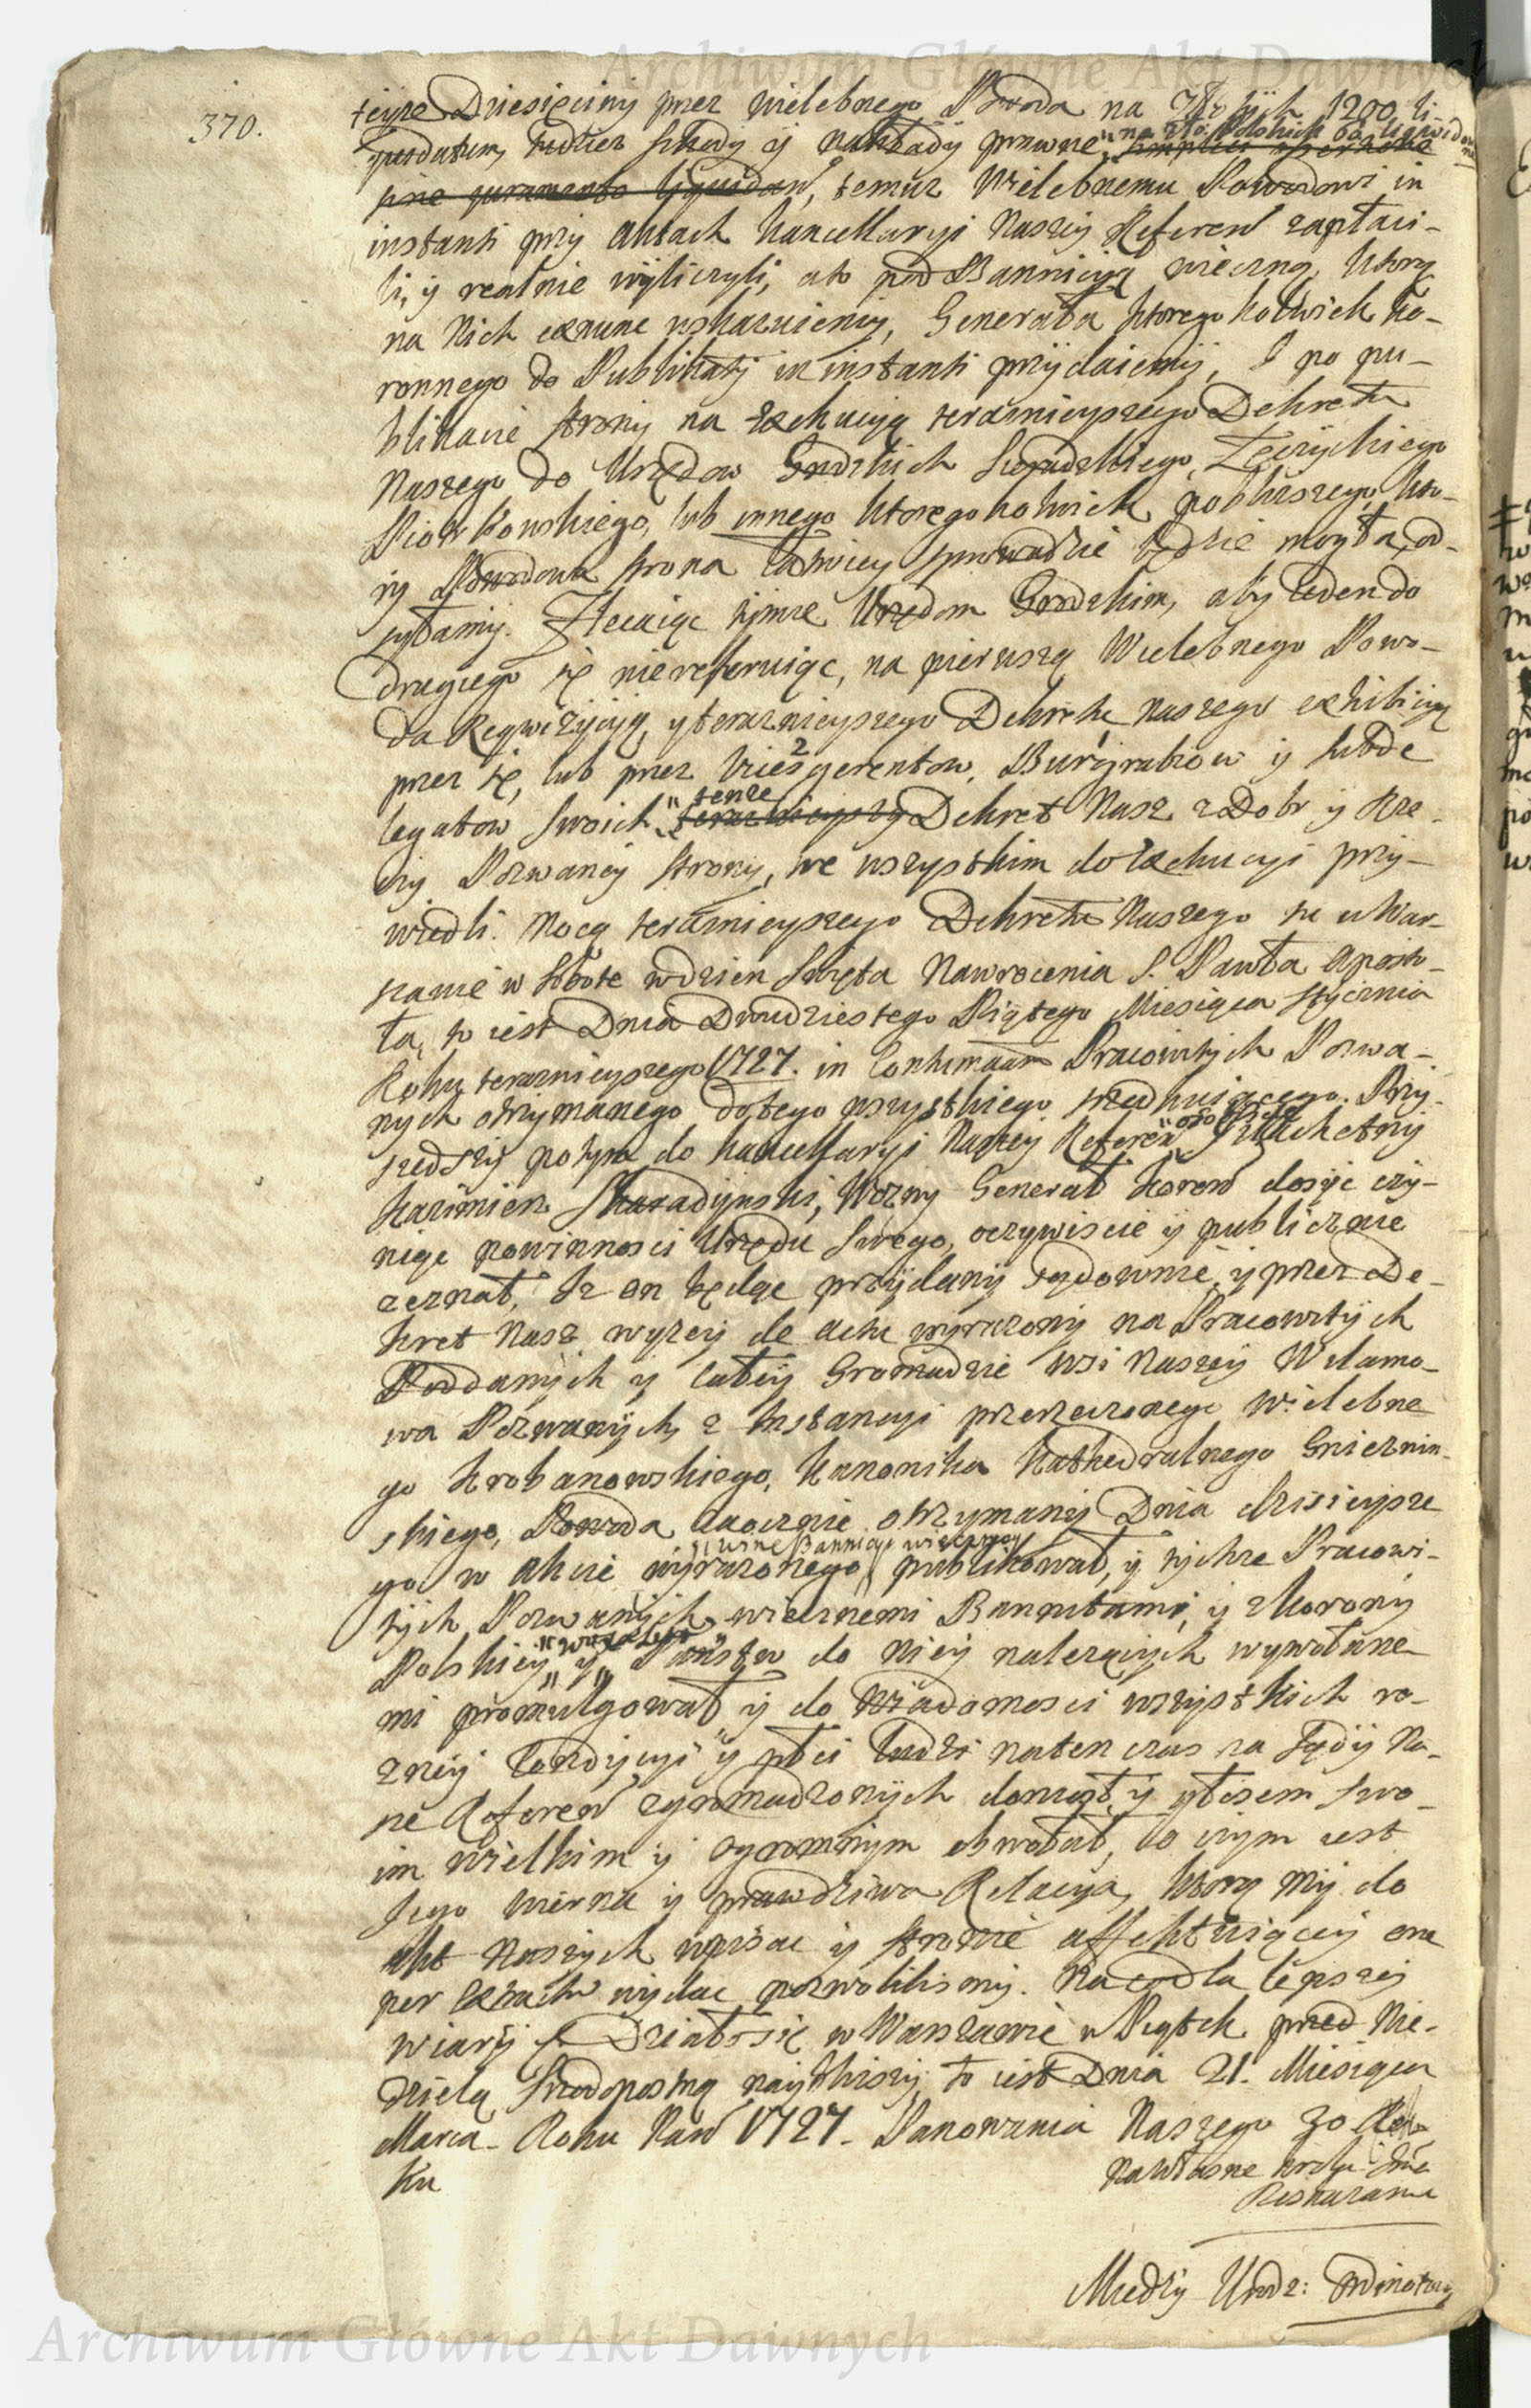 Archiwum Główne Akt Dawnych
370.
teyze Dziesięciny przez wielebnego Powoda na złłych 1200 li-
quidatum, tudziez szkody y nakłady prawne na zło: Polskich
sine juramento liquidaw, temuz Wielebnemu Powodowi in
instanti przy aktach Kancellaryi Naszey Referen zapłaci-
li, y realnie wyliczyli, a to pod Bannicyą wieczną, ktorą
na Nich exnunc wskazuiemy, Generała ktorego kolwiek ko-
ronnego do Publikaty in instanti przydaiemy, I po pu-
blikacie strony na Exekucyą teraznieyszego Dekretu
Naszego do Urzędow Grodzkich Sieradzkiego, Łęczyckiego
Piotrkowskiego, lub innego ktoregokolwiek pobliszego, kto-
ry Powodowa strona łatwiey sprowadzic będzie mogła, od-
syłamy. Zlecaiąc tymze Urzędom Grodzkim, aby ieden do
drugiego się nie referuiąc, na pierwszą Wielebnego Powo-
da Reqwizycyą, y teraznieyszego Dekretu Naszego exhibicyą
przez się, lub przez Vicesgerentow, Burgrabiow y subde
2
legatow swoich tenze teraznieyszy Dekret Nasz z Dobr y Rze-
czy Pozwaney strony, we wszystkim do Exekucyi przy-
wiedli. Mocą teraznieyszego Dekretu Naszego tu w War-
szawie w Sobotę w dzien Swięta Nawrocenia S. Pawła Aposto-
ła, to iest Dnia Dwudziestego Piątego Miesiąca Stycznia
Roku teraznieyszego 1727. in Contumaciam Pracowitych Pozwa-
nych otrzymanego do tego wszystkiego. Przy-
szedszy potym do Kancellaryi Naszey Referen osobiscie Szlachetny
Kazimierz Skaradynski, Wozny Generał Koron dosyc czy-
niąc powinnosci Urzędu swego, oczywiscie y publicznie
zeznał, Iz on będąc przydany sądownie, y przez De-
kret Nasz wyzey de actu wyrazony na Pracowitych
Poddanych y całey Gromadzie wsi Naszey Wilamo-
wa Pozwanych, z Instancyi przerzeczonego Wielebne
go Krobanowskiego, Kanonika Kathedralnego Gnieznin-
skiego, Powoda, otrzymany Dnia dzisieysze
go w akcie wyrazonego publikował, y tychze Pracowi-
tych Pozwanych wiecznemi Bannitami, y z Korony
Polskiey y Panstw do niey nalezących wywołane-
mi promulgował y do wiadomosci wszystkich ro-
zney Kondycyi y płci ludzi naten czas na Sądy Na-
sze Referen zgromadzonych doniosł, y głosem swo-
im wielkim y ogromnym obwołał, o czym iest
Jego wierna y prawdziwa Relacya, ktorą my do
akt Naszych wpisac y stronie affektuiącey one
per Extractu wydac pozwolilismy. Na co dla lepszey
wiary Działo się w Warszawie w Piątek przed Nie-
dzielą Srzodopostną nayblizszy, to iest Dnia 21. Miesiąca
Marca. Roku Pans 1727. Panowania Naszego 30 Ro
ku
Na własne
Roskazanie
Miedzy Urodz: Ordinatus
Archiwum Główne Akt Dawnych